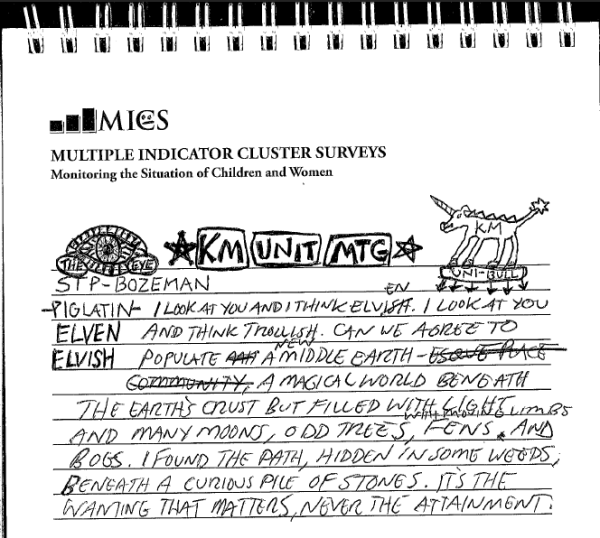 MICS
MULTIPLE INDICATOR CLUSTER SURVEYS
Monitoring the Situation of Children and Women
THE EYE
KM UNIT MTG
KM
UNI-BULL
STP-BOZEMAN
EN
-PIGLATIN- I LOOK AT YOU AND I THINK ELVISH. I LOOK AT YOU
ELVEN AND THINK TROLLISH. CAN WE AGREE TO
NEW
ELVISH POPULATE A MIDDLE EARTH-ESQUE PLACE
COMMUNITY, A MAGICAL WORLD BENEATH
THE EARTH'S CRUST BUT FILLED WITH LIGHT
WITH MOVING LIMBS
AND MANY MOONS, ODD TREES, FENS, AND
BOGS. I FOUND THE PATH, HIDDEN IN SOME WEEDS,
BENEATH A CURIOUS PILE OF STONES. IT'S THE
WANTING THAT MATTERS, NEVER THE ATTAINMENT.